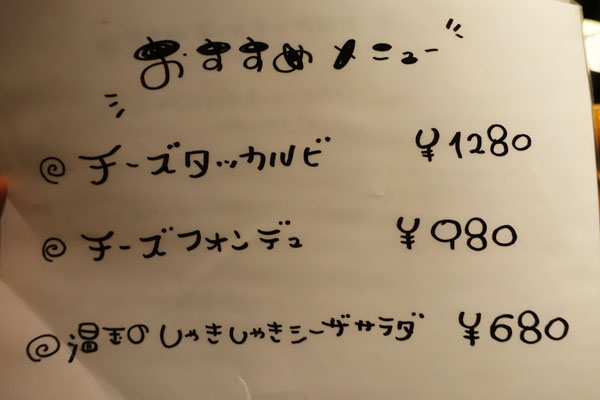 おすすめメニュー
チーズタッカルビ ¥1280
チーズフォンデュ ¥980
温玉のしゃきしゃきシーザサラダ ¥680